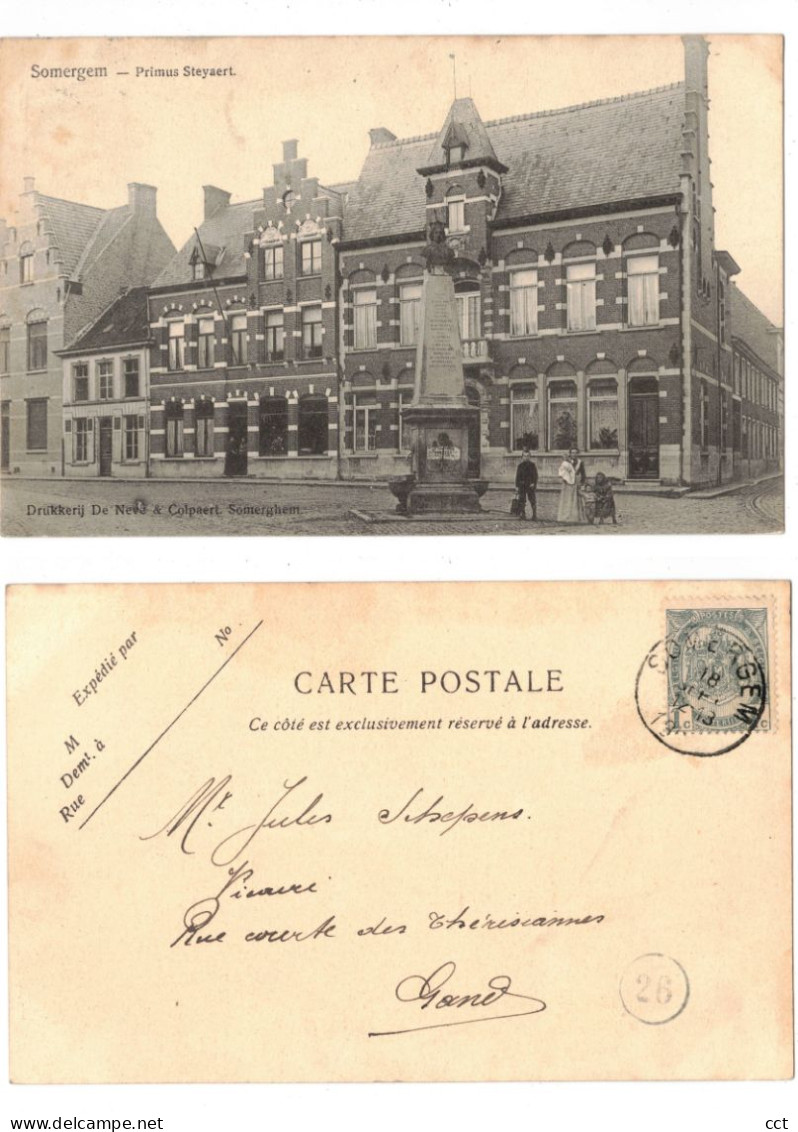 Somergem — Primus Steyaert.
Drukkerij De Neve & Colpaert. Somerghem
Expédié par
No
M
Demt. à
Rue
CARTE POSTALE
Ce côté est exclusivement réservé à l'adresse.
POSTES
SOMERGEM
18
12-13
Mr. Jules Schepens.
Vicaire
Rue courte des Thérésiannes
Gand
26
Delcampe.net
cct